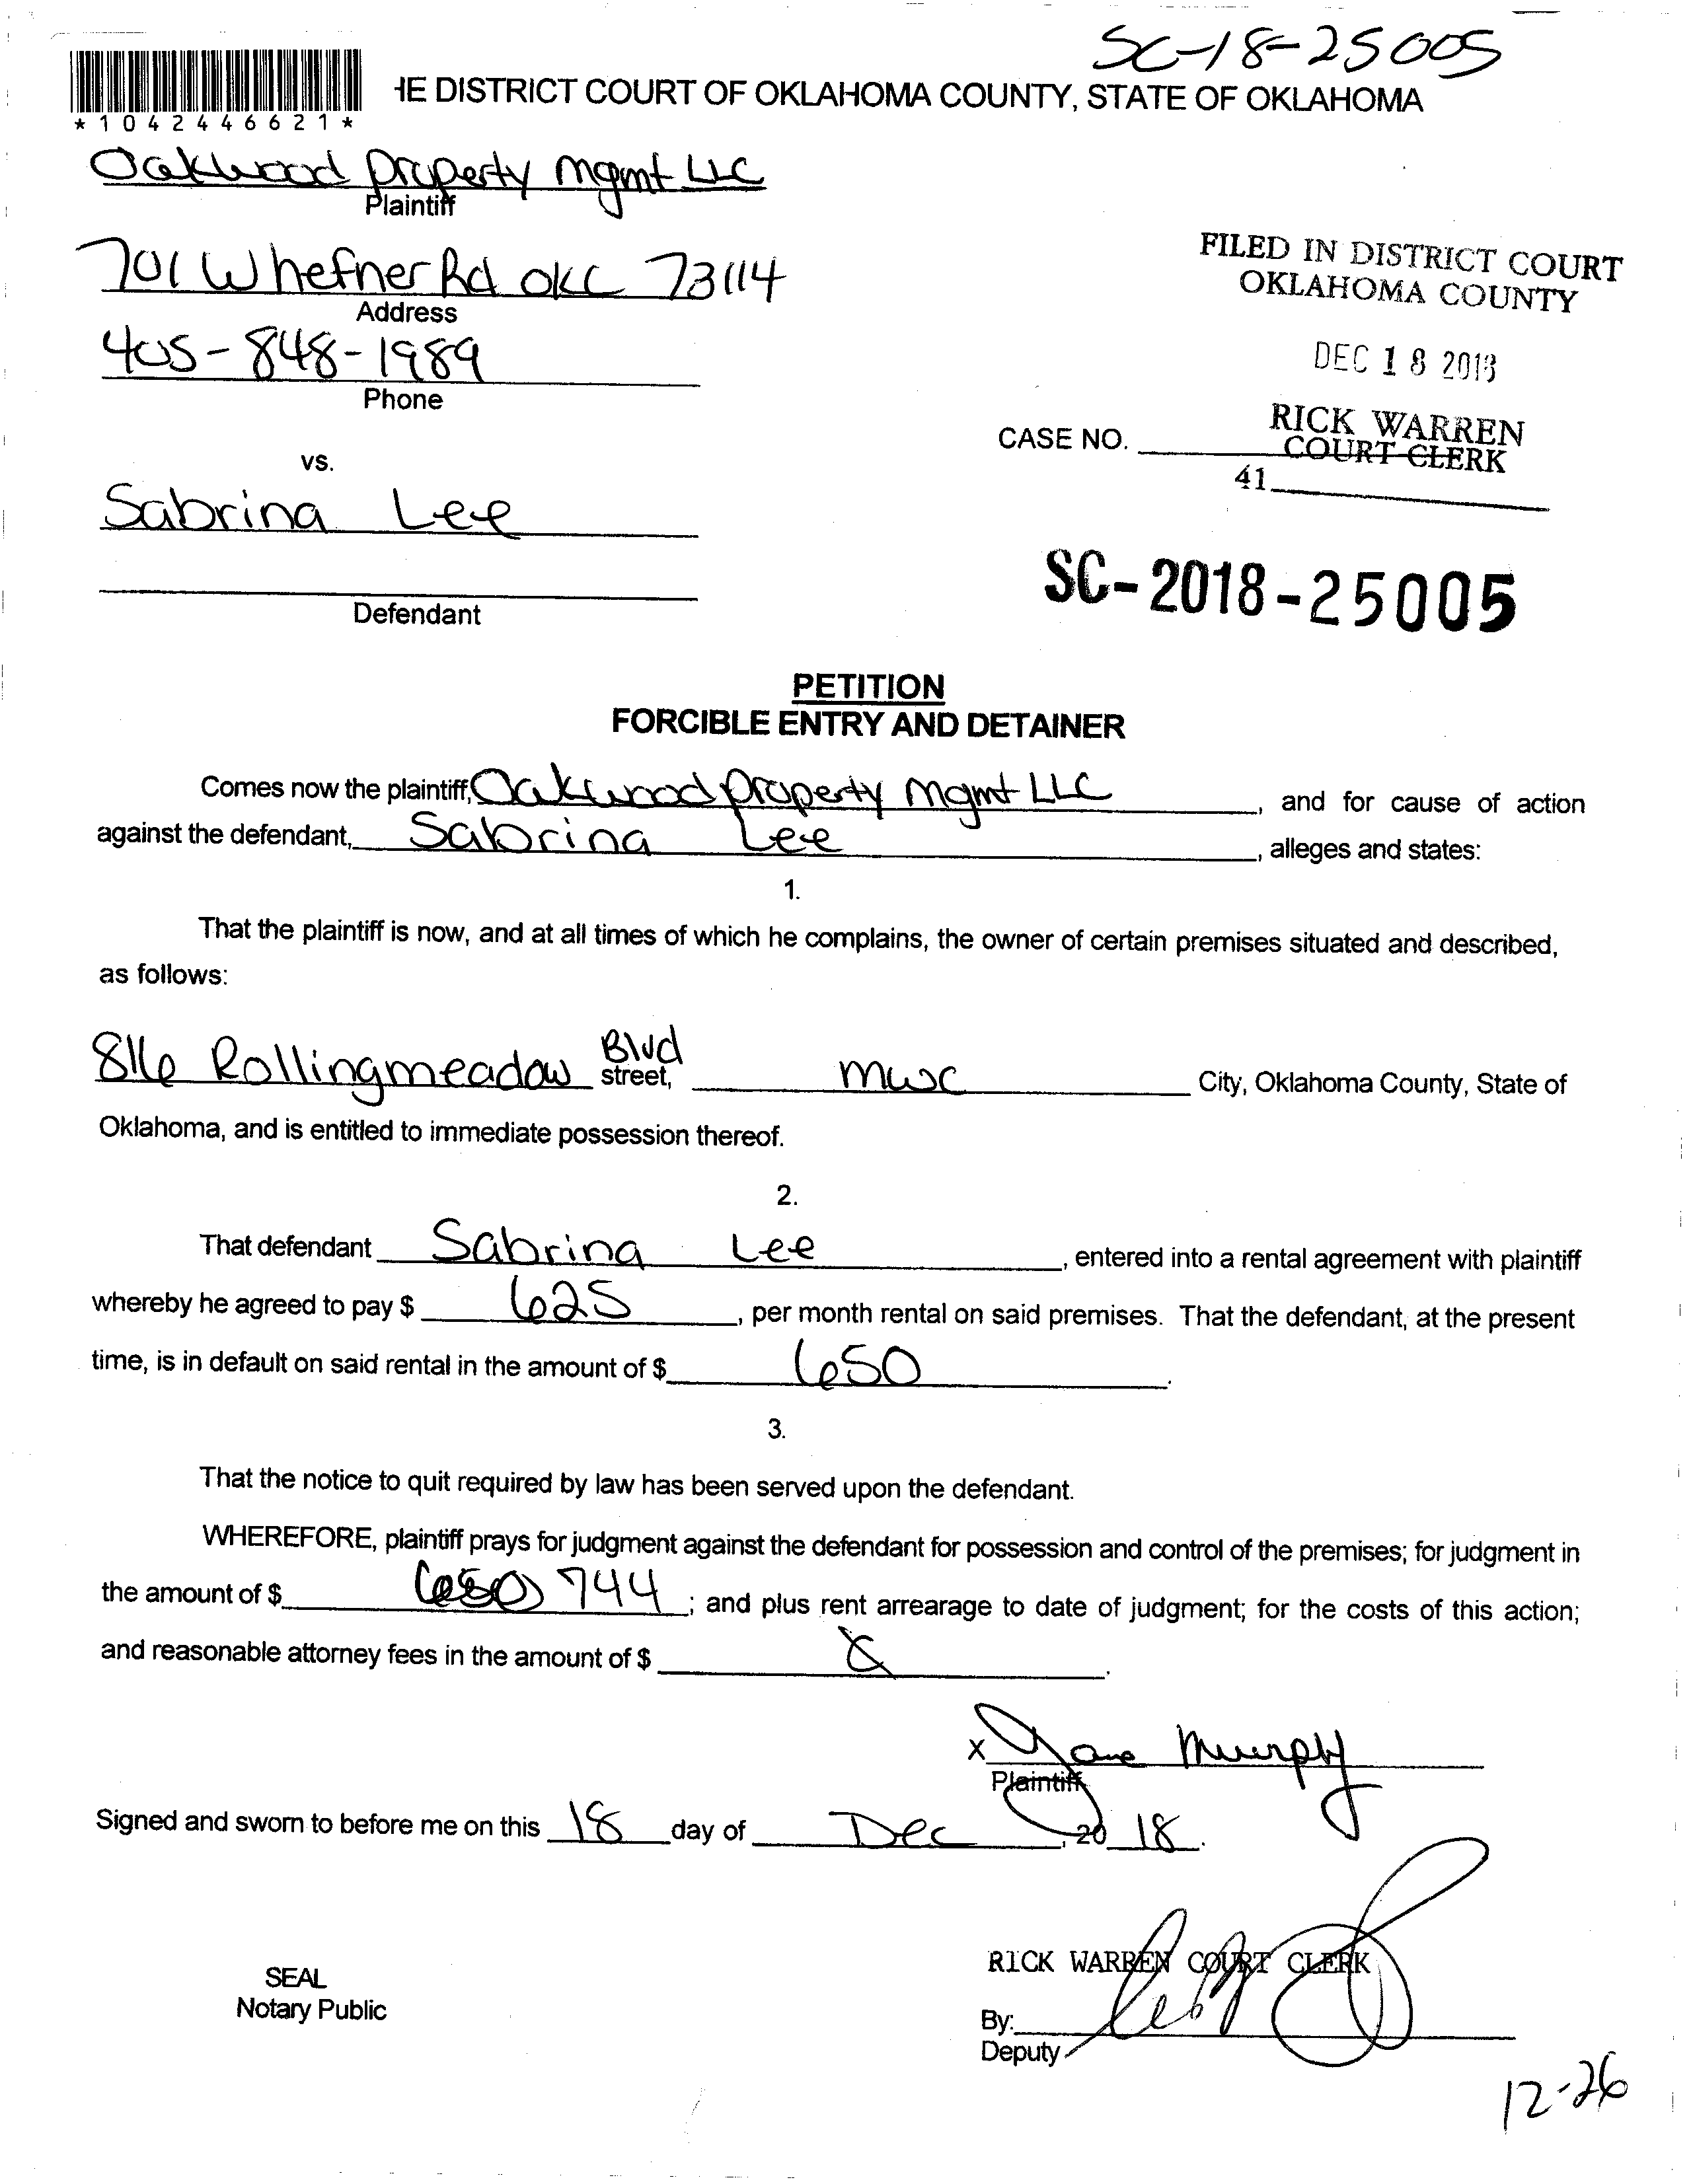 SC-18-25005
HE DISTRICT COURT OF OKLAHOMA COUNTY, STATE OF OKLAHOMA
*1042446621*
Oakwood property mgmt LLC
Plaintiff
701 W hefner Rd OKC 73114
Address
405-848-1989
Phone
FILED IN DISTRICT COURT
OKLAHOMA COUNTY
DEC 18 2018
RICK WARREN
COURT CLERK
41
CASE NO.
vs.
Sabrina Lee
Defendant
SC-2018-25005
PETITION
FORCIBLE ENTRY AND DETAINER
Comes now the plaintiff, Oakwood property mgmt LLC, and for cause of action
against the defendant, Sabrina Lee, alleges and states:
1.
That the plaintiff is now, and at all times of which he complains, the owner of certain premises situated and described,
as follows:
816 Rollingmeadow Blvd street, mwc City, Oklahoma County, State of
Oklahoma, and is entitled to immediate possession thereof.
2.
That defendant Sabrina Lee, entered into a rental agreement with plaintiff
whereby he agreed to pay $ 625, per month rental on said premises. That the defendant, at the present
time, is in default on said rental in the amount of $ 650.
3.
That the notice to quit required by law has been served upon the defendant.
WHEREFORE, plaintiff prays for judgment against the defendant for possession and control of the premises; for judgment in
the amount of $ 650 744; and plus rent arrearage to date of judgment; for the costs of this action;
and reasonable attorney fees in the amount of $
X Jane Murphy
Plaintiff
Signed and sworn to before me on this 18 day of Dec, 20 18.
RICK WARREN COURT CLERK
SEAL
Notary Public
By:
Deputy
12-26